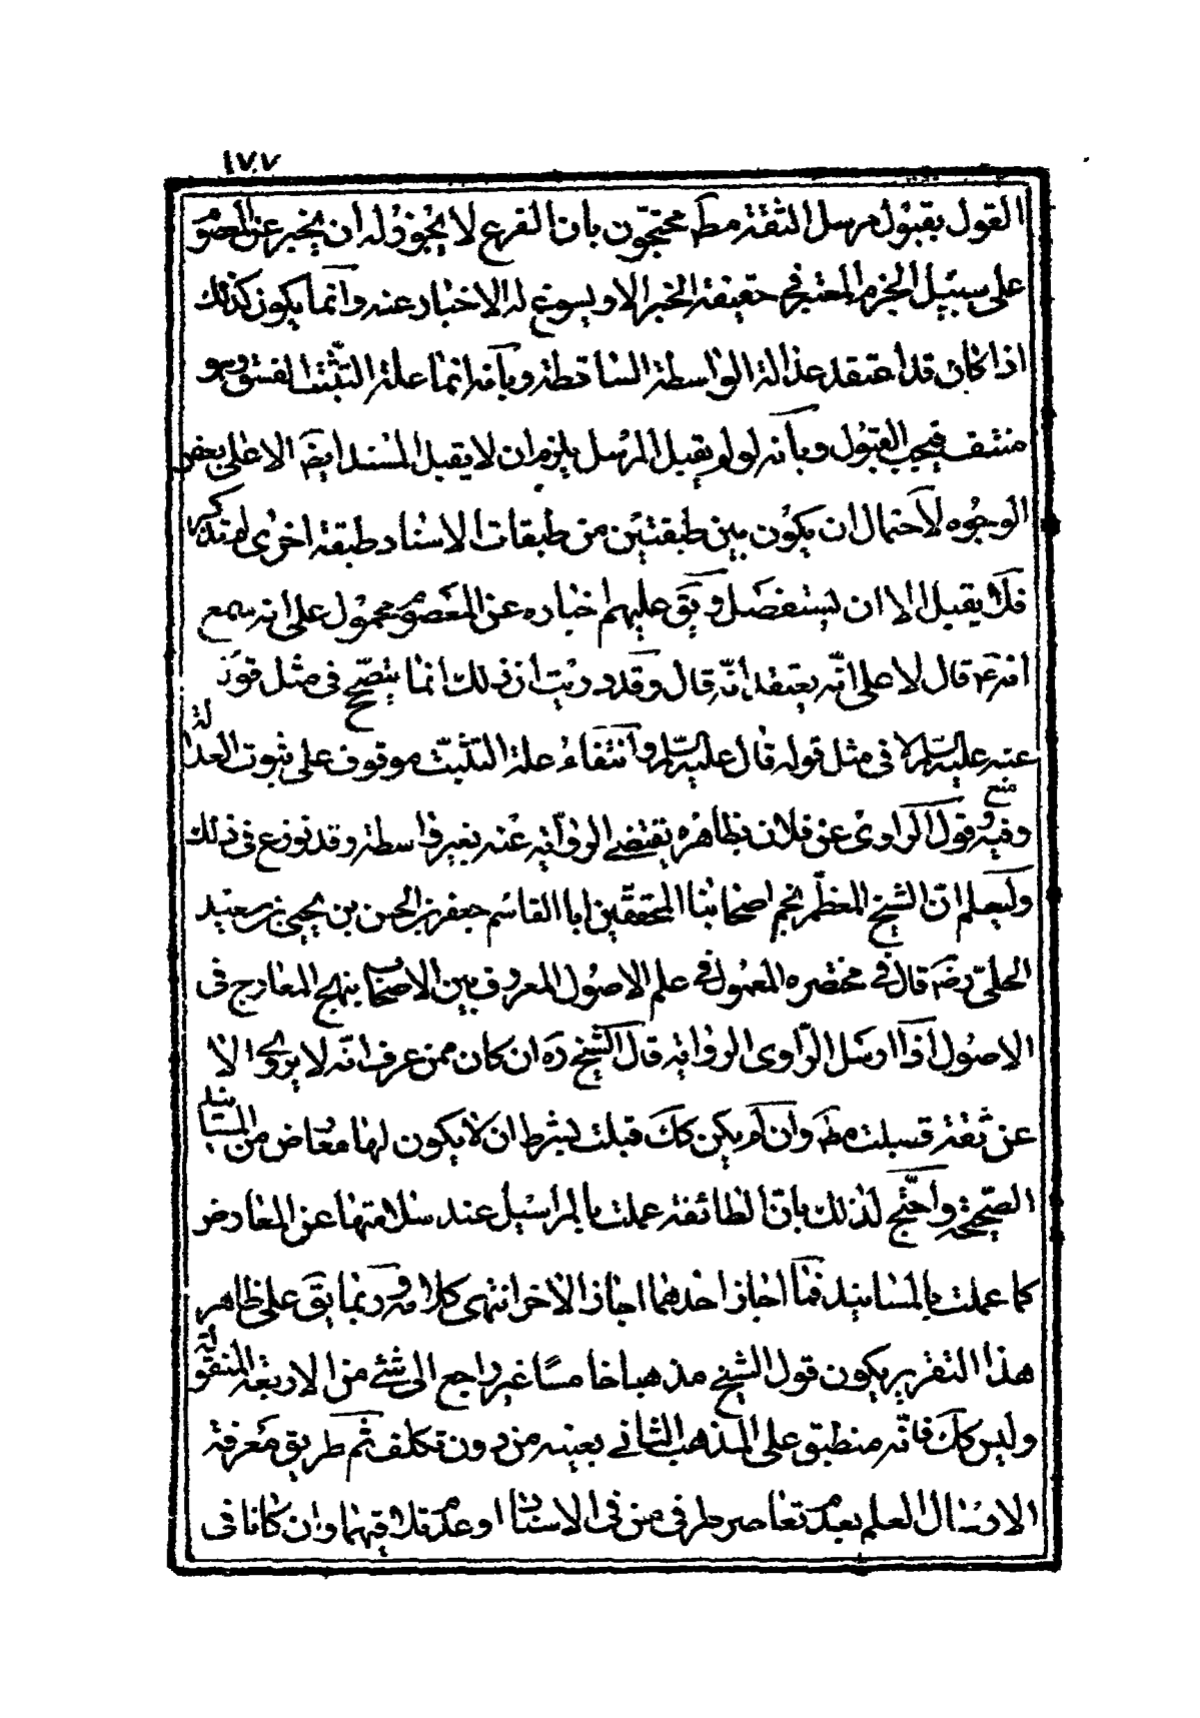 ١٧٧
القول بقبول مرسل الثقة مط محتجّون بان الفرع لا يجوز له ان يخبر عن المعصو
على سبيل الجزم المعتبر في حقيقة الخبر الا ويسوغ له الاخبار عنه وانما يكون كذلك
اذا كان قد اعتقد عدالة الواسطة الساقطة وبانه انما علة التثبت الفسق وهو
منتف فيجب القبول وبانه لو لم يقبل المرسل يلزم ان لا يقبل المسند ايضَ الا على بعض
الوجوه لاحتمال ان يكون بين طبقتين من طبقات الاسناد طبقة اخرى لم تذكر
فلا يقبل الا ان يستفصل ويَق عليهم اخباره عن المعصوم محمول على انه سمع
انه ع قال لا على انّه يعتقد انّه قال وقد دريت ان ذلك انما يتصحّح في مثل قوله
عنه عليه السلم لا في مثل قوله قال عليه السلم وانتفاء علة التثبّت موقوف على ثبوت العدالة
وفيه منع وقول الراوى عن فلان بظاهره يقتضي الرواية عنه بغير واسطة وقد نوزع في ذلك
وليعلم انّ الشيخ المعظّم نجم اصحابنا المحققين ابا القاسم جعفر بن الحسن بن يحيى بن سعيد
الحلىّ رضَ قال في مختصره المعمول في علم الاصول المعروف بين الاصحاب بنهج المعارج في
الاصول اذا ارسل الرّاوى الرواية قال الشيخ ره ان كان ممن عرف انّه لا يروى الا
عن ثقة قبلت مطَ وان لم يكن كك قبلت بشرط ان لا يكون لها معارض من المسانيد
الصّحيحة واحتّج لذلك بانّ الطائفة عملت بالمراسيل عند سلامتها عن المعارض
كما عملت بالمسانيد فما اجاز احدهما اجاز الاخر انتهى كلامه وربما يَق على ظاهر
هذا التقرير يكون قول الشيخ مذهبا خامسًا غير راجع الى شئ من الاربعة المنقولة
وليس كك فانّه منطبق على المذهب الثاني بعينه من دون تكلف ثم طريق معرفة
الارسال العلم بعدم تعاصر طرفي من في الاسناد او عدم تلاقيهما وان كانا في